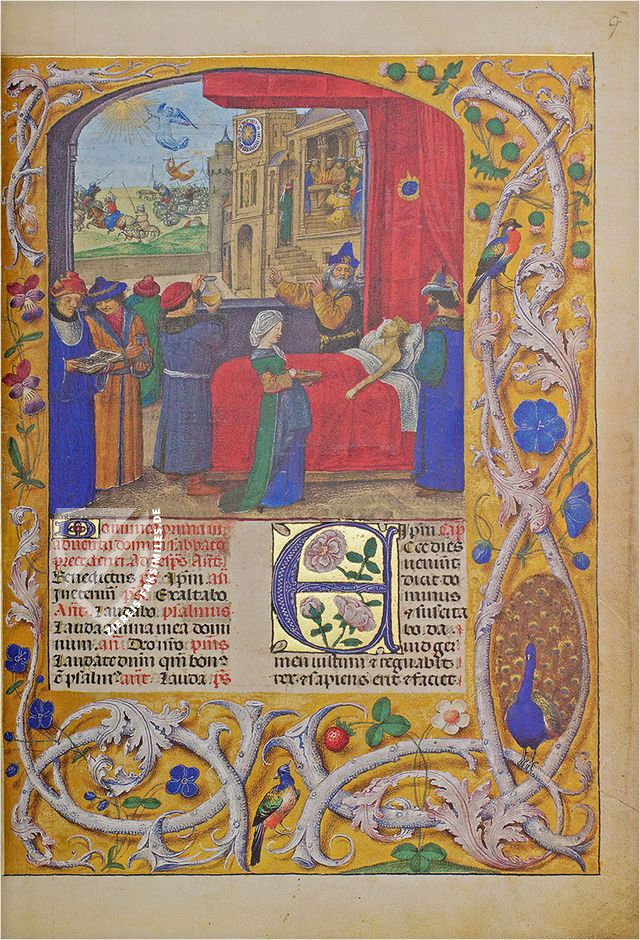 9
Dominica prima in
adventu domini sabbato
precedenti ad vesp̄s Añt.
Benedictus ps̄. Ipm̄. añ
In eternum ps̄. Exaltabo
Añt. Laudabo. psalmus
Lauda anima mea domi
num. añ. Deo nr̄o. pm̄s
Laudate dn̄m qm̄ bonꝰ
ē psalmꝰ. añt. Lauda. ps̄
Ipm̄. Cap̄
Ecce dies
veniunt
dicit do
minus
⁊ suscita
bo. da
uid ger
men iustum ⁊ regnabit
rex ⁊ sapiens erit ⁊ faciet